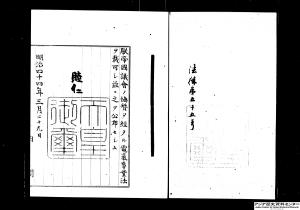 法律第五十五号
朕帝国議会ノ協賛ヲ経タル電気事業法
ヲ裁可シ茲ニ之ヲ公布セシム
睦仁
天皇
御璽
明治四十四年三月二十九日
アジア歴史資料センター